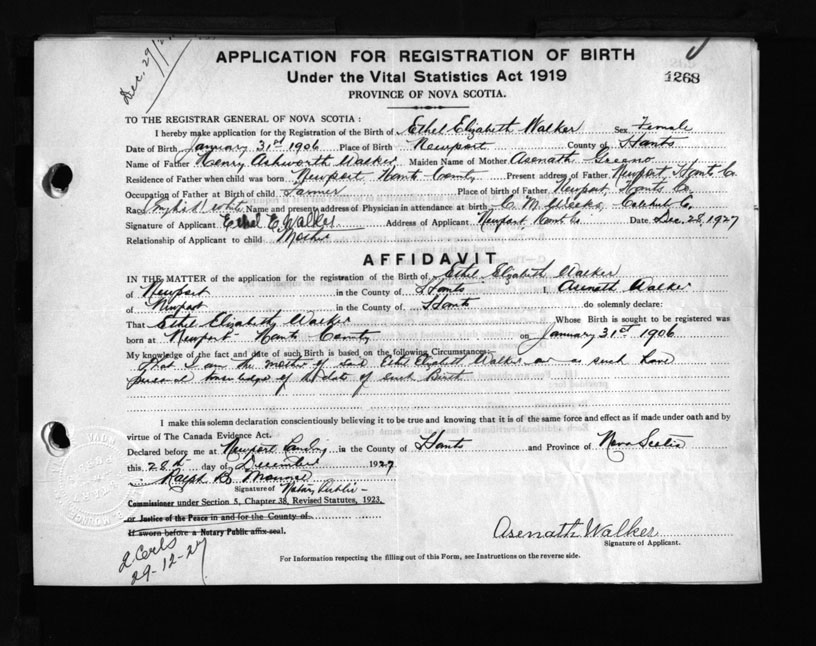 Dec. 29/27
APPLICATION FOR REGISTRATION OF BIRTH
Under the Vital Statistics Act 1919
1268
PROVINCE OF NOVA SCOTIA.
TO THE REGISTRAR GENERAL OF NOVA SCOTIA :
I hereby make application for the Registration of the Birth of Ethel Elizabeth Walker Sex Female
Date of Birth January 31st 1906 Place of Birth Newport County of Hants
Name of Father Henry Ashworth Walker Maiden Name of Mother Asenath Greeno
Residence of Father when child was born Newport Hants County Present address of Father Newport, Hants Co.
Occupation of Father at Birth of child Farmer Place of birth of Father Newport Hants Co.
Race (English) white Name and present address of Physician in attendance at birth C. M. Colchest. Co.
Signature of Applicant Ethel E Walker Address of Applicant Newport, Hants Co Date Dec. 28, 1927
Relationship of Applicant to child Mother
AFFIDAVIT
IN THE MATTER of the application for the registration of the Birth of Ethel Elizabeth Walker
of Newport in the County of Hants I, Asenath Walker
of Newport in the County of Hants do solemnly declare:
That Ethel Elizabeth Walker Whose Birth is sought to be registered was
born at Newport Hants County on January 31st 1906
My knowledge of the fact and date of such Birth is based on the following Circumstances
That I am the mother of said Ethel Elizabeth Walker and as such have
personal knowledge of date of such Birth
I make this solemn declaration conscientiously believing it to be true and knowing that it is of the same force and effect as if made under oath and by
virtue of The Canada Evidence Act.
Declared before me at Newport Landing in the County of Hants and Province of Nova Scotia
this 28th day of December 1927
Ralph B.
Signature of Notary Public
Commissioner under Section 5, Chapter 38, Revised Statutes, 1923,
or Justice of the Peace in and for the County of
If sworn before a Notary Public affix seal.
Asenath Walker
Signature of Applicant.
2 Certs
29-12-27
For Information respecting the filling out of this Form, see Instructions on the reverse side.